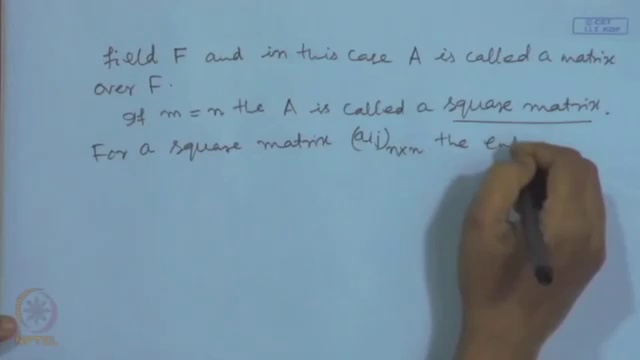 field F and in this case A is called a matrix
over F.
If m = n the A is called a square matrix.
For a square matrix (aij)n×n the en
NPTEL